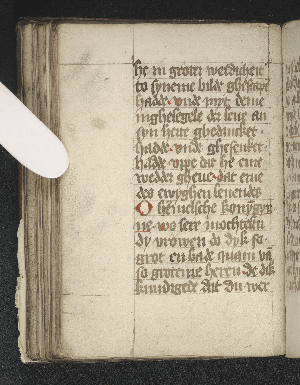 he in groter werdicheit
to syneme bilde gheschape
hadde. vnde myt deme
inghesegele der leue an
syn herte ghedrucket
hadde. vnde ghesencket
hadde vppe dat he eme
wedder gheue. dat erue
des ewyghen leuendes
O hemelsche konygyn
ne. wo sere mochtestu
dy vrowen do dyk so
grot en bade quam vā
so groteme heren. de dik
kundigede dat du wer